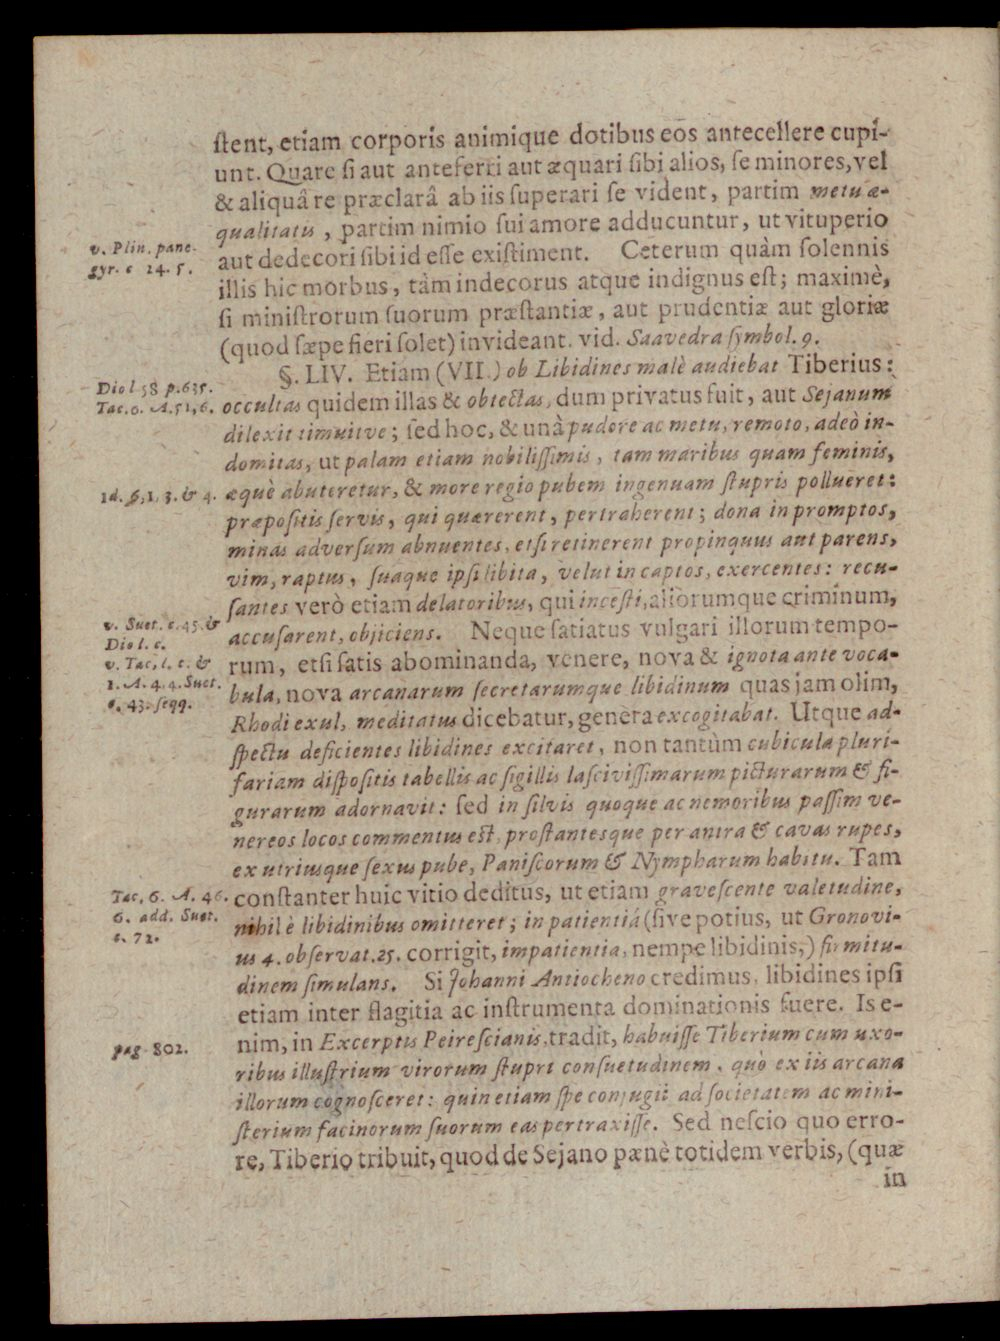 ſtent, etiam corporis animique dotibus eos antecellere cupi-
unt. Quare ſi aut anteferri aut æquari ſibi alios, ſe minores, vel
& aliquâ re præclarâ ab iis ſuperari ſe vident, partim metu æ-
qualitatis, partim nimio ſui amore adducuntur, ut vituperio
v. Plin. pane-
gyr. c 14. 5.
aut dedecori ſibi id eſſe exiſtiment. Ceterum quàm ſolennis
illis hic morbus, tàm indecorus atque indignus eſt; maximè,
ſi miniſtrorum ſuorum præſtantiæ, aut prudentiæ aut gloriæ
(quod ſæpe fieri ſolet) invideant. vid. Saavedra ſymbol. 9.
§. LIV. Etiam (VII.) ob Libidines malè audiebat Tiberius:
Dio l 58 p. 635.
Tac. 6. A. 51, 6.
occultas quidem illas & obtectas, dum privatus fuit, aut Sejanum
dilexit timuitve; ſed hoc, & unà pudore ac metu, remoto, adeò in-
domitas, ut palam etiam nobiliſſimis, tam maribus quam feminis,
Id. 6, 1, 3. & 4.
æquè abuteretur, & more regio pubem ingenuam ſtupris pollueret:
præpoſitis ſervis, qui quærerent, pertraherent; dona in promptos,
minas adverſum abnuentes, etſi retinerent propinquus aut parens,
vim, raptus, ſuaque ipſi libita, velut in captos, exercentes: recu-
ſantes verò etiam delatoribus, qui inceſti, aliorumque criminum,
v. Suet. c. 45. &
Dio l. c.
accuſarent, objiciens. Neque ſatiatus vulgari illorum tempo-
v. Tac. l. c. &
1. A. 4. 4. Suet.
c. 43. ſeqq.
rum, etſi ſatis abominanda, venere, nova & ignota ante voca-
bula, nova arcanarum ſecretarumque libidinum quas jam olim,
Rhodi exul, meditatus dicebatur, genera excogitabat. Utque ad-
ſpectu deficientes libidines excitaret, non tantùm cubicula pluri-
fariam diſpoſitis tabellis ac ſigillis laſciviſſimarum picturarum & fi-
gurarum adornavit: ſed in ſilvis quoque ac nemoribus paſſim ve-
nereos locos commentus eſt, proſtantesque per antra & cavas rupes,
ex utriusque ſexus pube, Paniſcorum & Nympharum habitu. Tam
Tac. 6. A. 46.
6. add. Suet.
c. 72.
conſtanter huic vitio deditus, ut etiam graveſcente valetudine,
nihil è libidinibus omitteret; in patientiá (ſive potius, ut Gronovi-
us 4. obſervat. 25. corrigit, impatientia, nempe libidinis,) firmitu-
dinem ſimulans. Si Johanni Antiocheno credimus, libidines ipſi
etiam inter flagitia ac inſtrumenta dominationis fuere. Is e-
pag 802.
nim, in Excerptis Peireſcianis, tradit, habuiſſe Tiberium cum uxo-
ribus illuſtrium virorum ſtupri conſuetudinem, quò ex iis arcana
illorum cognoſceret: quin etiam ſpe conjugii ad ſocietatem ac mini-
ſterium facinorum ſuorum eas pertraxiſſe. Sed neſcio quo erro-
re, Tiberio tribuit, quod de Sejano pænè totidem verbis, (quæ
in